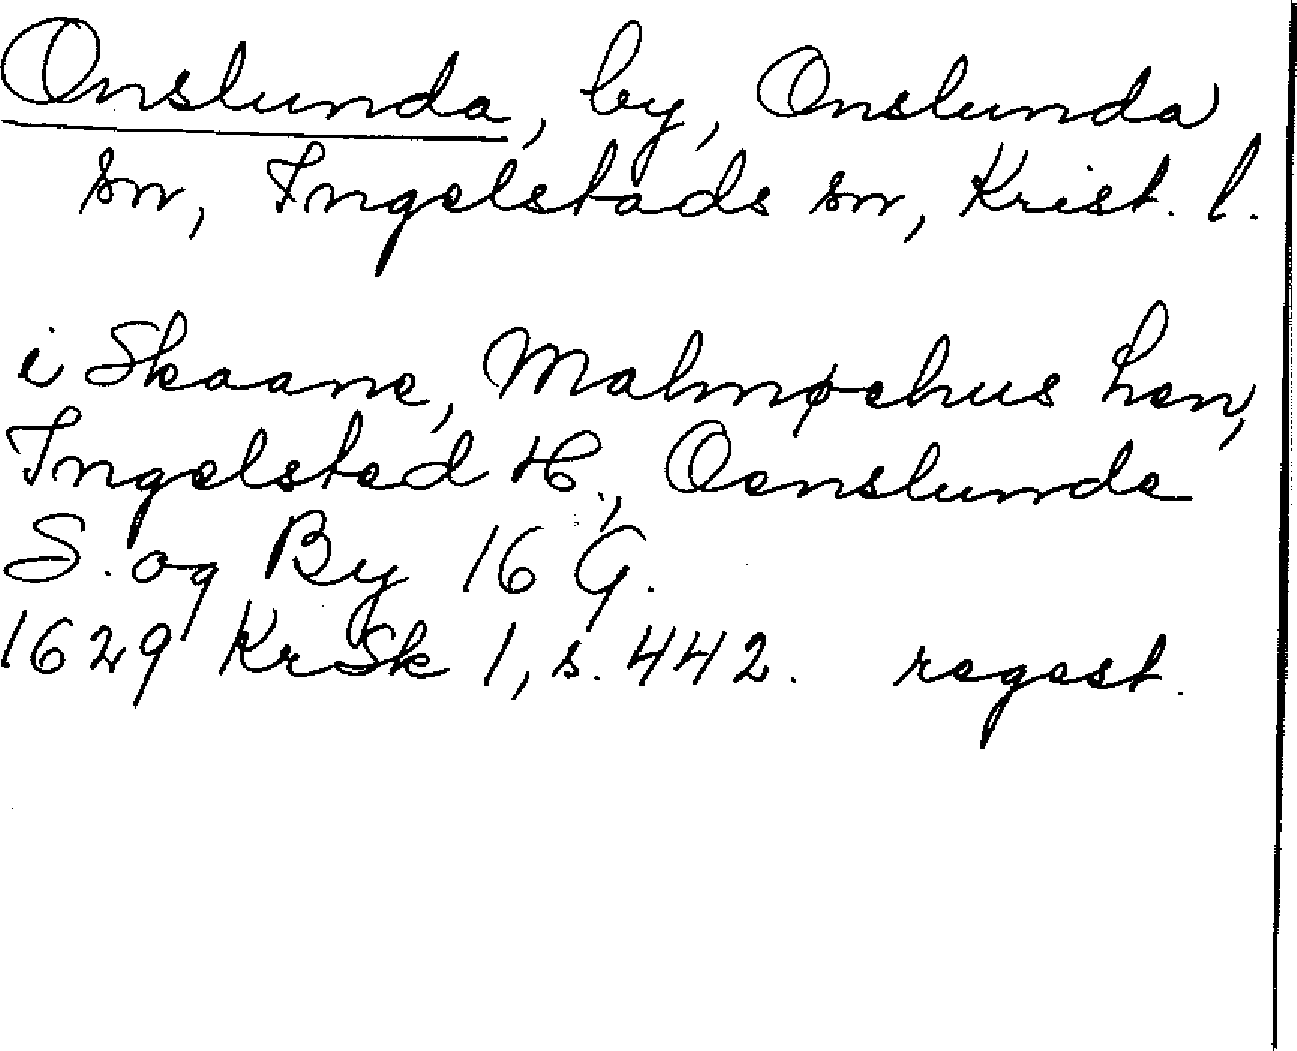 Onslunda, by, Onslunda
sn, Ingelstads sn, Krist. l.
i Skaane, Malmøehus Len,
Ingelsted H., Oenslunde
S. og By 16 G.
1629 KrSk 1, s. 442. regest.